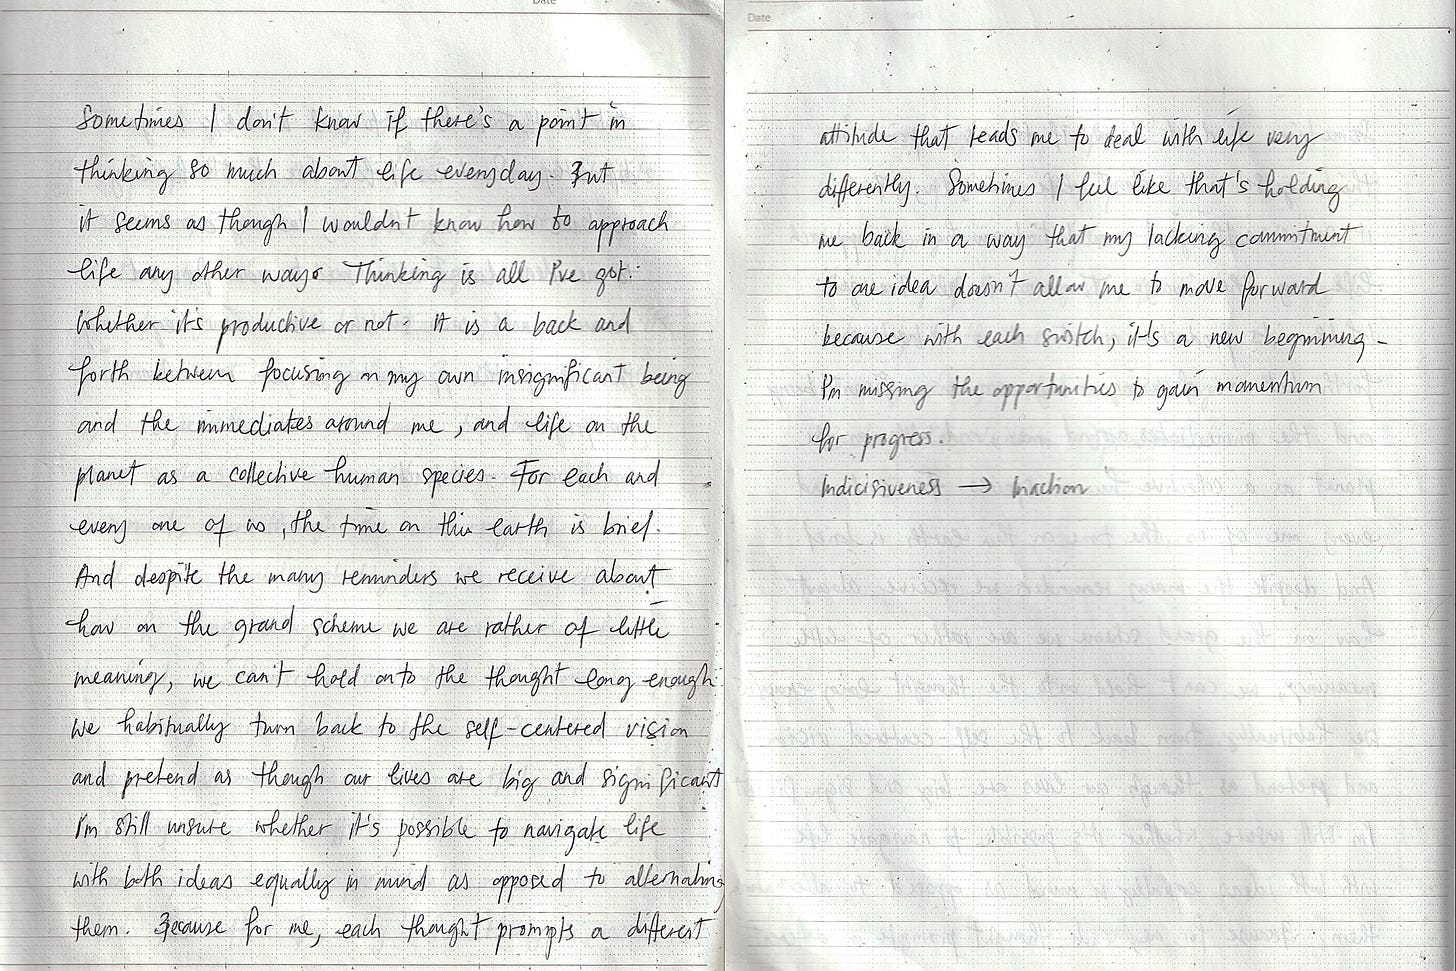 Date
Sometimes I don't know if there's a point in
thinking so much about life everyday. But
it seems as though I wouldn't know how to approach
life any other way. Thinking is all I've got.
Whether it's productive or not. It is a back and
forth between focusing on my own insignificant being
and the immediates around me, and life on the
planet as a collective human species. For each and
every one of us, the time on this earth is brief.
And despite the many reminders we receive about
how on the grand scheme we are rather of little
meaning, we can't hold onto the thought long enough.
We habitually turn back to the self-centered vision
and pretend as though our lives are big and significant
I'm still unsure whether it's possible to navigate life
with both ideas equally in mind as opposed to alternating
them. Because for me, each thought prompts a different
Date
attitude that leads me to deal with life very
differently. Sometimes I feel like that's holding
me back in a way that my lacking commitment
to one idea doesn't allow me to move forward
because with each switch, it's a new beginning -
I'm missing the opportunities to gain momentum
for progress.
Indicisiveness → Inaction